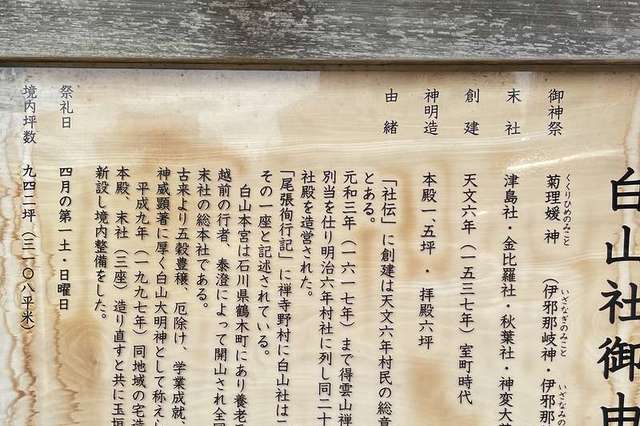 白山社御由
御神祭 菊理媛 神 (伊邪那岐神・伊邪那
くくりひめのみこと いざなぎのみこと いざなみの
末社 津島社・金比羅社・秋葉社・神変大
創建 天文六年(一五三七年)室町時代
神明造 本殿一、五坪 ・ 拝殿六坪
由緒 「社伝」に創建は天文六年村民の総意
とある。
元和三年(一六一七年)まで得雲山禅
別当を仕り明治六年村社に列し同二十
社殿を造営された。
「尾張徇行記」に禅寺野村に白山社は二
その一座と記述されている。
白山本宮は石川県鶴木町にあり養老
越前の行者、泰澄によって開山され全国
末社の総本社である。
古来より五穀豊穣、厄除け、学業成就、
神威顕著に厚く白山大明神として称え
平成九年(一九九七年)同地域の宅造
本殿、末社(三座)造り直すと共に玉垣
新設し境内整備をした。
祭礼日 四月の第一土・日曜日
境内坪数 九四二坪(三一〇八平米)